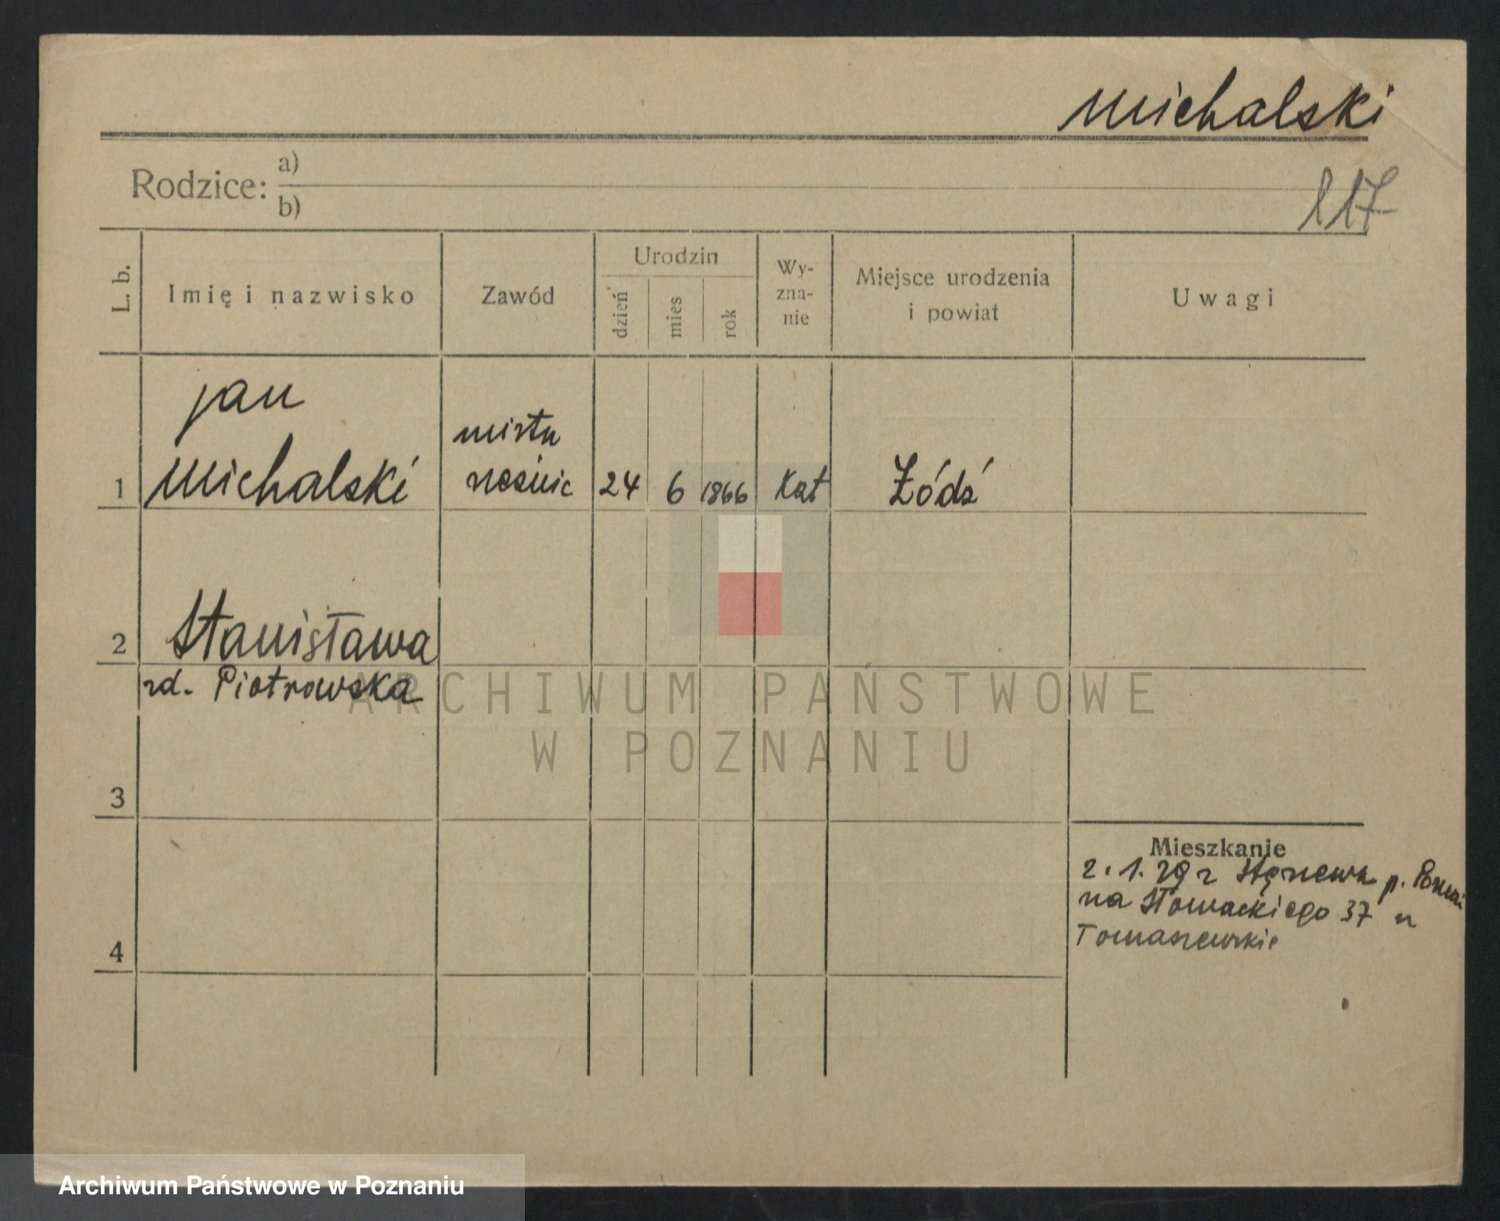 Michalski
Rodzice: a)
b)
117
L. b.
Imię i nazwisko
Zawód
Urodzin
dzień
mies
rok
Wy-
zna-
nie
Miejsce urodzenia
i powiat
Uwagi
Jan
mistrz
1 Michalski rzeźnic 24 6 1866 Kat Łódź
2 Stanisława
rd. Piotrowska
ARCHIWUM PAŃSTWOWE
W POZNANIU
3
Mieszkanie
2.1.29 z p.
na Słowackiego 37 u
Tomaszewskie
4
Archiwum Państwowe w Poznaniu